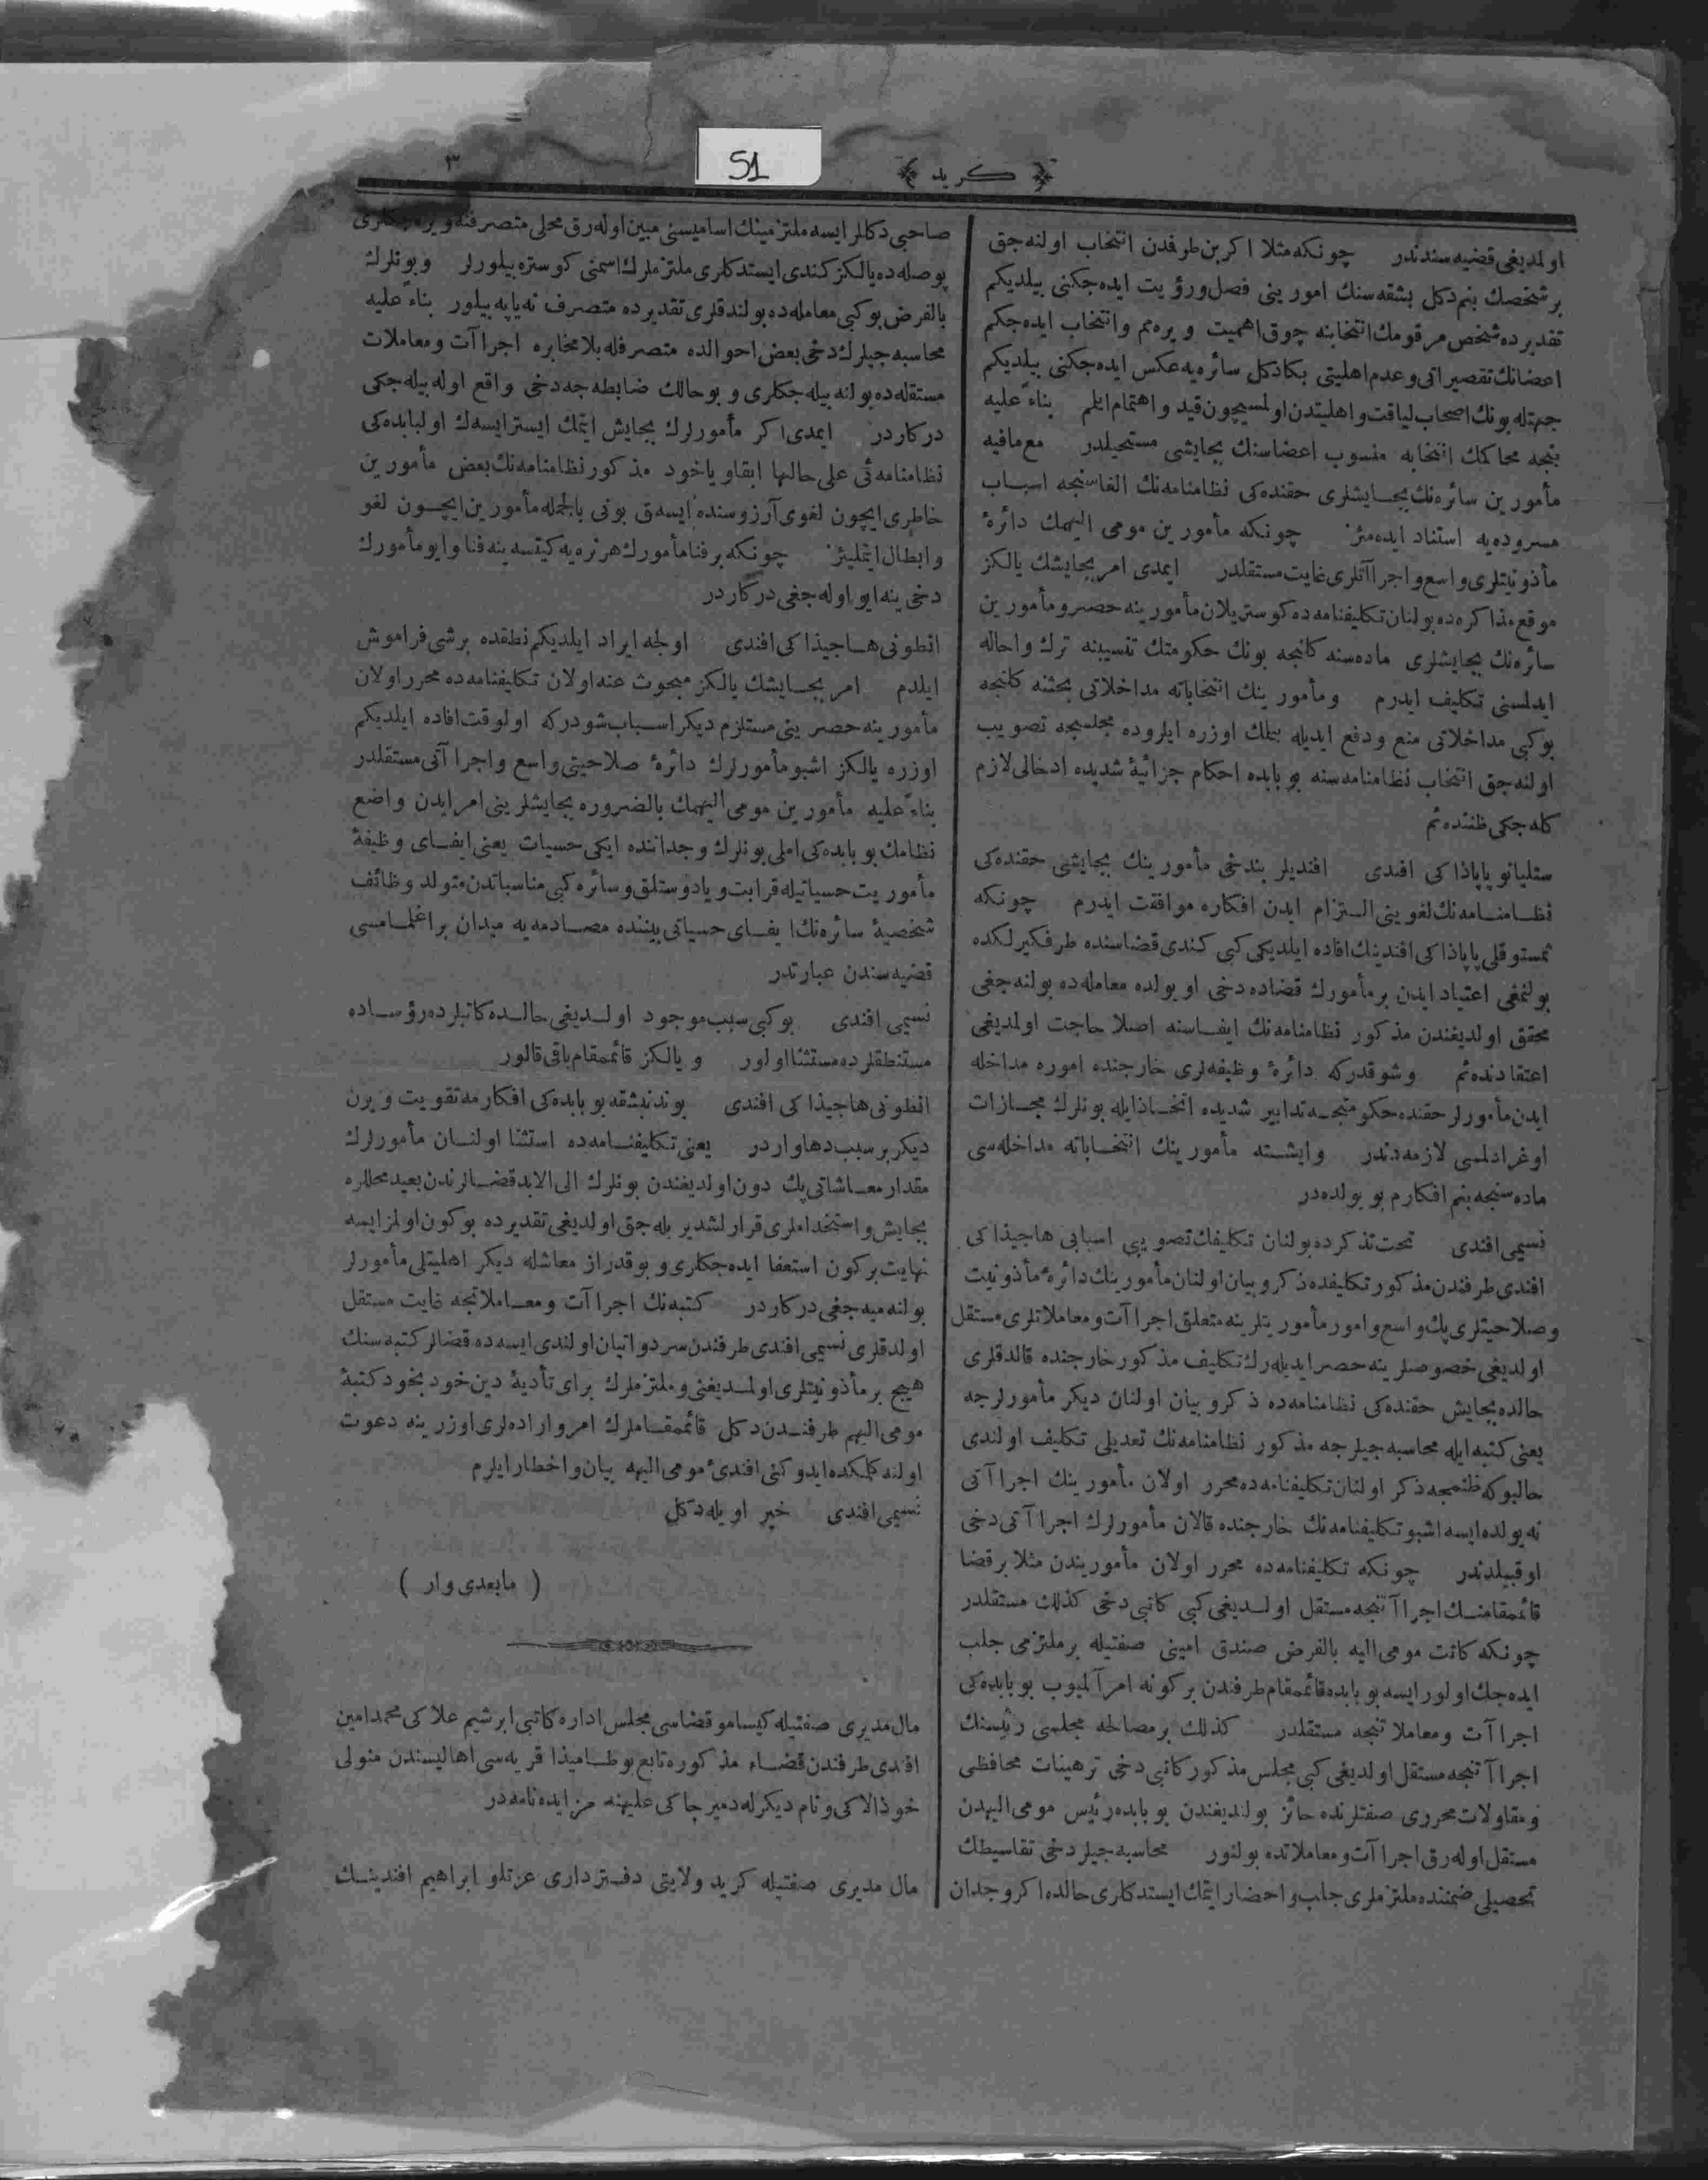 ﴿ كريد ﴾
٣
51
اولمديغى قضيه سندندر چونكه مثلا اكر بن طرفدن انتخاب اولنه جق
بر شخصك بنم دكل بشقه سنك امورينى فصل ورؤيت ايده جكنى بيلديكم
تقديرده شخص مرقومك انتخابنه چوق اهميت ويره م وانتخاب ايده جكم
اعضانك تقصيراتى وعدم اهليتى بكا دكل سائره يه عكس ايده جكنى بيلديكم
جهتله بونك اصحاب لياقت واهليتدن اولمسيچون قيد واهتمام ايلم بناءً عليه
بنجه محاكمك انتخابه منسوب اعضاسنك بجايشى مستحيلدر مع مافيه
مأمورين سائره نك بجايشلرى حقنده كى نظامنامه نك الغاسنجه اسباب
مسروده يه استناد ايده مز چونكه مأمورين مومى اليهمك دائرهٔ
مأذونيتلرى واسع واجراآتلرى غايت مستقلدر ايمدى امر بجايشك يالكز
موقع مذاكره ده بولنان تكليفنامه ده كوستريلان مأمورينه حصر ومأمورين
سائره نك بجايشلرى ماده سنه كلنجه بونك حكومتك تنسيبنه ترك واحاله
ايدلسنى تكليف ايدرم ومأمورينك انتخاباته مداخلاتى بحثنه كلنجه
بوكبى مداخلاتى منع ودفع ايديله بيلمك اوزره ايلروده مجلسجه تصويب
اولنه جق انتخاب نظامنامه سنه بو بابده احكام جزائيهٔ شديده ادخالى لازم
كله جكى ظننده يم
ستليانو پاپاذاكى افندى افنديلر بندخى مأمورينك بجايشى حقنده كى
نظامنامه نك لغوينى التزام ايدن افكاره موافقت ايدرم چونكه
ثمستوقلى پاپاذاكى افندينك افاده ايلديكى كبى كندى قضاسنده طرفكيرلكده
بولنمغى اعتياد ايدن بر مأمورك قضاده دخى او يولده معامله ده بولنه جغى
محقق اولديغندن مذكور نظامنامه نك ايفاسنه اصلا حاجت اولمديغى
اعتقادنده يم وشو قدركه دائرهٔ وظيفه لرى خارجنده اموره مداخله
ايدن مأمورلر حقنده حكومتجه تدابير شديده اتخاذ ايله بونلرك مجازات
اوغرادلمسى لازمه دندر وايشته مأمورينك انتخاباته مداخله سى
ماده سنجه بنم افكارم بو يولده در
نسيمى افندى تحت تذكرده بولنان تكليفك تصويبى اسبابى هاجيذاكى
افندى طرفندن مذكور تكليفده ذكر وبيان اولنان مأمورينك دائرهٔ مأذونيت
وصلاحيتلرى پك واسع وامور مأموريتلرينه متعلق اجراآت ومعاملاتلرى مستقل
اولديغى خصوصلرينه حصر ايديله رك تكليف مذكور خارجنده قالدقلرى
حالده بجايش حقنده كى نظامنامه ده ذكر وبيان اولنان ديكر مأمورلرجه
يعنى كتبه ايله محاسبه جيلرجه مذكور نظامنامه نك تعديلى تكليف اولندى
حالبوكه ظنمجه ذكر اولنان تكليفنامه ده محرر اولان مأمورينك اجراآتى
نه يولده ايسه اشبو تكليفنامه نك خارجنده قالان مأمورلرك اجراآتى دخى
او قبيلدندر چونكه تكليفنامه ده محرر اولان مأموريندن مثلا بر قضا
قائممقامنك اجراآتنجه مستقل اولديغى كبى كاتبى دخى كذلك مستقلدر
چونكه كاتب مومى اليه بالفرض صندق امينى صفتيله بر ملتزمى جلب
ايده جك اولور ايسه بو بابده قائممقام طرفندن بر كونه امر آلميوب بو بابده كى
اجراآت ومعاملاتنجه مستقلدر كذلك بر مصالحه مجلسى رئيسنك
اجراآتنجه مستقل اولديغى كبى مجلس مذكور كاتبى دخى ترهينات محافظى
ومقاولات محررى صفتلرنده حائز بولنديغندن بو بابده رئيس مومى اليهدن
مستقل اوله رق اجراآت ومعاملاتده بولنور محاسبه جيلر دخى تقاسيطك
تحصيلى ضمننده ملتزملرى جلب واحضار ايتمك ايستدكلرى حالده اكر وجدان
صاحبى دكللر ايسه ملتزمينك اساميسنى مبين اوله رق محلى متصرفنه ويره جكلرى
پوصله ده يالكز كندى ايستدكلرى ملتزملرك اسمنى كوستره بيلورلر وبونلرك
بالفرض بوكبى معامله ده بولندقلرى تقديرده متصرف نه ياپه بيلور بناءً عليه
محاسبه جيلرك دخى بعض احوالده متصرفله بلا مخابره اجراآت ومعاملات
مستقله ده بولنه بيله جكلرى وبو حالك ضابطه جه دخى واقع اوله بيله جكى
دركاردر ايمدى اكر مأمورلرك بجايش ايتمك ايسترايسه ك اولبابده كى
نظامنامه يى على حالها ابقا وياخود مذكور نظامنامه نك بعض مأمورين
خاطرى ايچون لغوى آرزوسنده ايسه ق بونى بالجمله مأمورين ايچون لغو
وابطال ايتمليز چونكه بر فنا مأمورك هر نره يه كيتسه ينه فنا وايو مأمورك
دخى ينه ايو اوله جغى دركاردر
انطونى هاجيذاكى افندى اولجه ايراد ايلديكم نطقده بر شى فراموش
ايلدم امر بجايشك يالكز مبحوث عنه اولان تكليفنامه ده محرر اولان
مأمورينه حصرينى مستلزم ديكر اسباب شودركه اولوقت افاده ايلديكم
اوزره يالكز اشبو مأمورلرك دائرهٔ صلاحيتى واسع واجراآتى مستقلدر
بناءً عليه مأمورين مومى اليهمك بالضروره بجايشلرينى امر ايدن واضع
نظامك بو بابده كى املى بونلرك وجداننده ايكى حسيات يعنى ايفاى وظيفهٔ
مأموريت حسياتيله قرابت وياد وستلق وسائره كبى مناسباتدن متولد وظائف
شخصيهٔ سائره نك ايفاى حسياتى بيننده مصادمه يه ميدان براغلمامسى
قضيه سندن عبارتدر
نسيمى افندى بوكبى سبب موجود اولديغى حالده كاتبلرده رؤساده
مستنطقلرده مستثنا اولور و يالكز قائممقام باقى قالور
انطونى هاجيذاكى افندى بوندنبشقه بو بابده كى افكارمه تقويت ويرن
ديكر بر سبب دها واردر يعنى تكليفنامه ده استثنا اولنان مأمورلرك
مقدار معاشاتى پك دون اولديغندن بونلرك الى الابد قضالرندن بعيد محللره
بجايش واستخداملرى قرارلشديريله جق اولديغى تقديرده بوكون اولمز ايسه
نهايت بركون استعفا ايده جكلرى وبوقدر از معاشله ديكر اهليتلى مأمورلر
بولنه ميه جغى دركاردر كتبه نك اجراآت ومعاملاتجه غايت مستقل
اولدقلرى نسيمى افندى طرفندن سرد واتيان اولندى ايسه ده قضالر كتبه سنك
هيچ بر مأذونيتلرى اولمديغنى وملتزملرك براى تأديهٔ دين خود بخود كتبهٔ
مومى اليهم طرفندن دكل قائممقاملرك امر واراده لرى اوزرينه دعوت
اولنه كلمكده ايدوكنى افندئ مومى اليهه بيان واخطار ايلرم
نسيمى افندى خير اويله دكل
( مابعدى وار )
مال مديرى صفتيله كيسامو قضاسى مجلس اداره كاتبى ابرشيم علاكى محمد امين
افندى طرفندن قضاء مذكوره تابع بوطاميذا قريه سى اهاليسندن متولى
خوذالاكى ونام ديكرله دميرجاكى عليهنه مزايده نامه در
مال مديرى صفتيله كريد ولايتى دفتردارى عزتلو ابراهيم افندينك